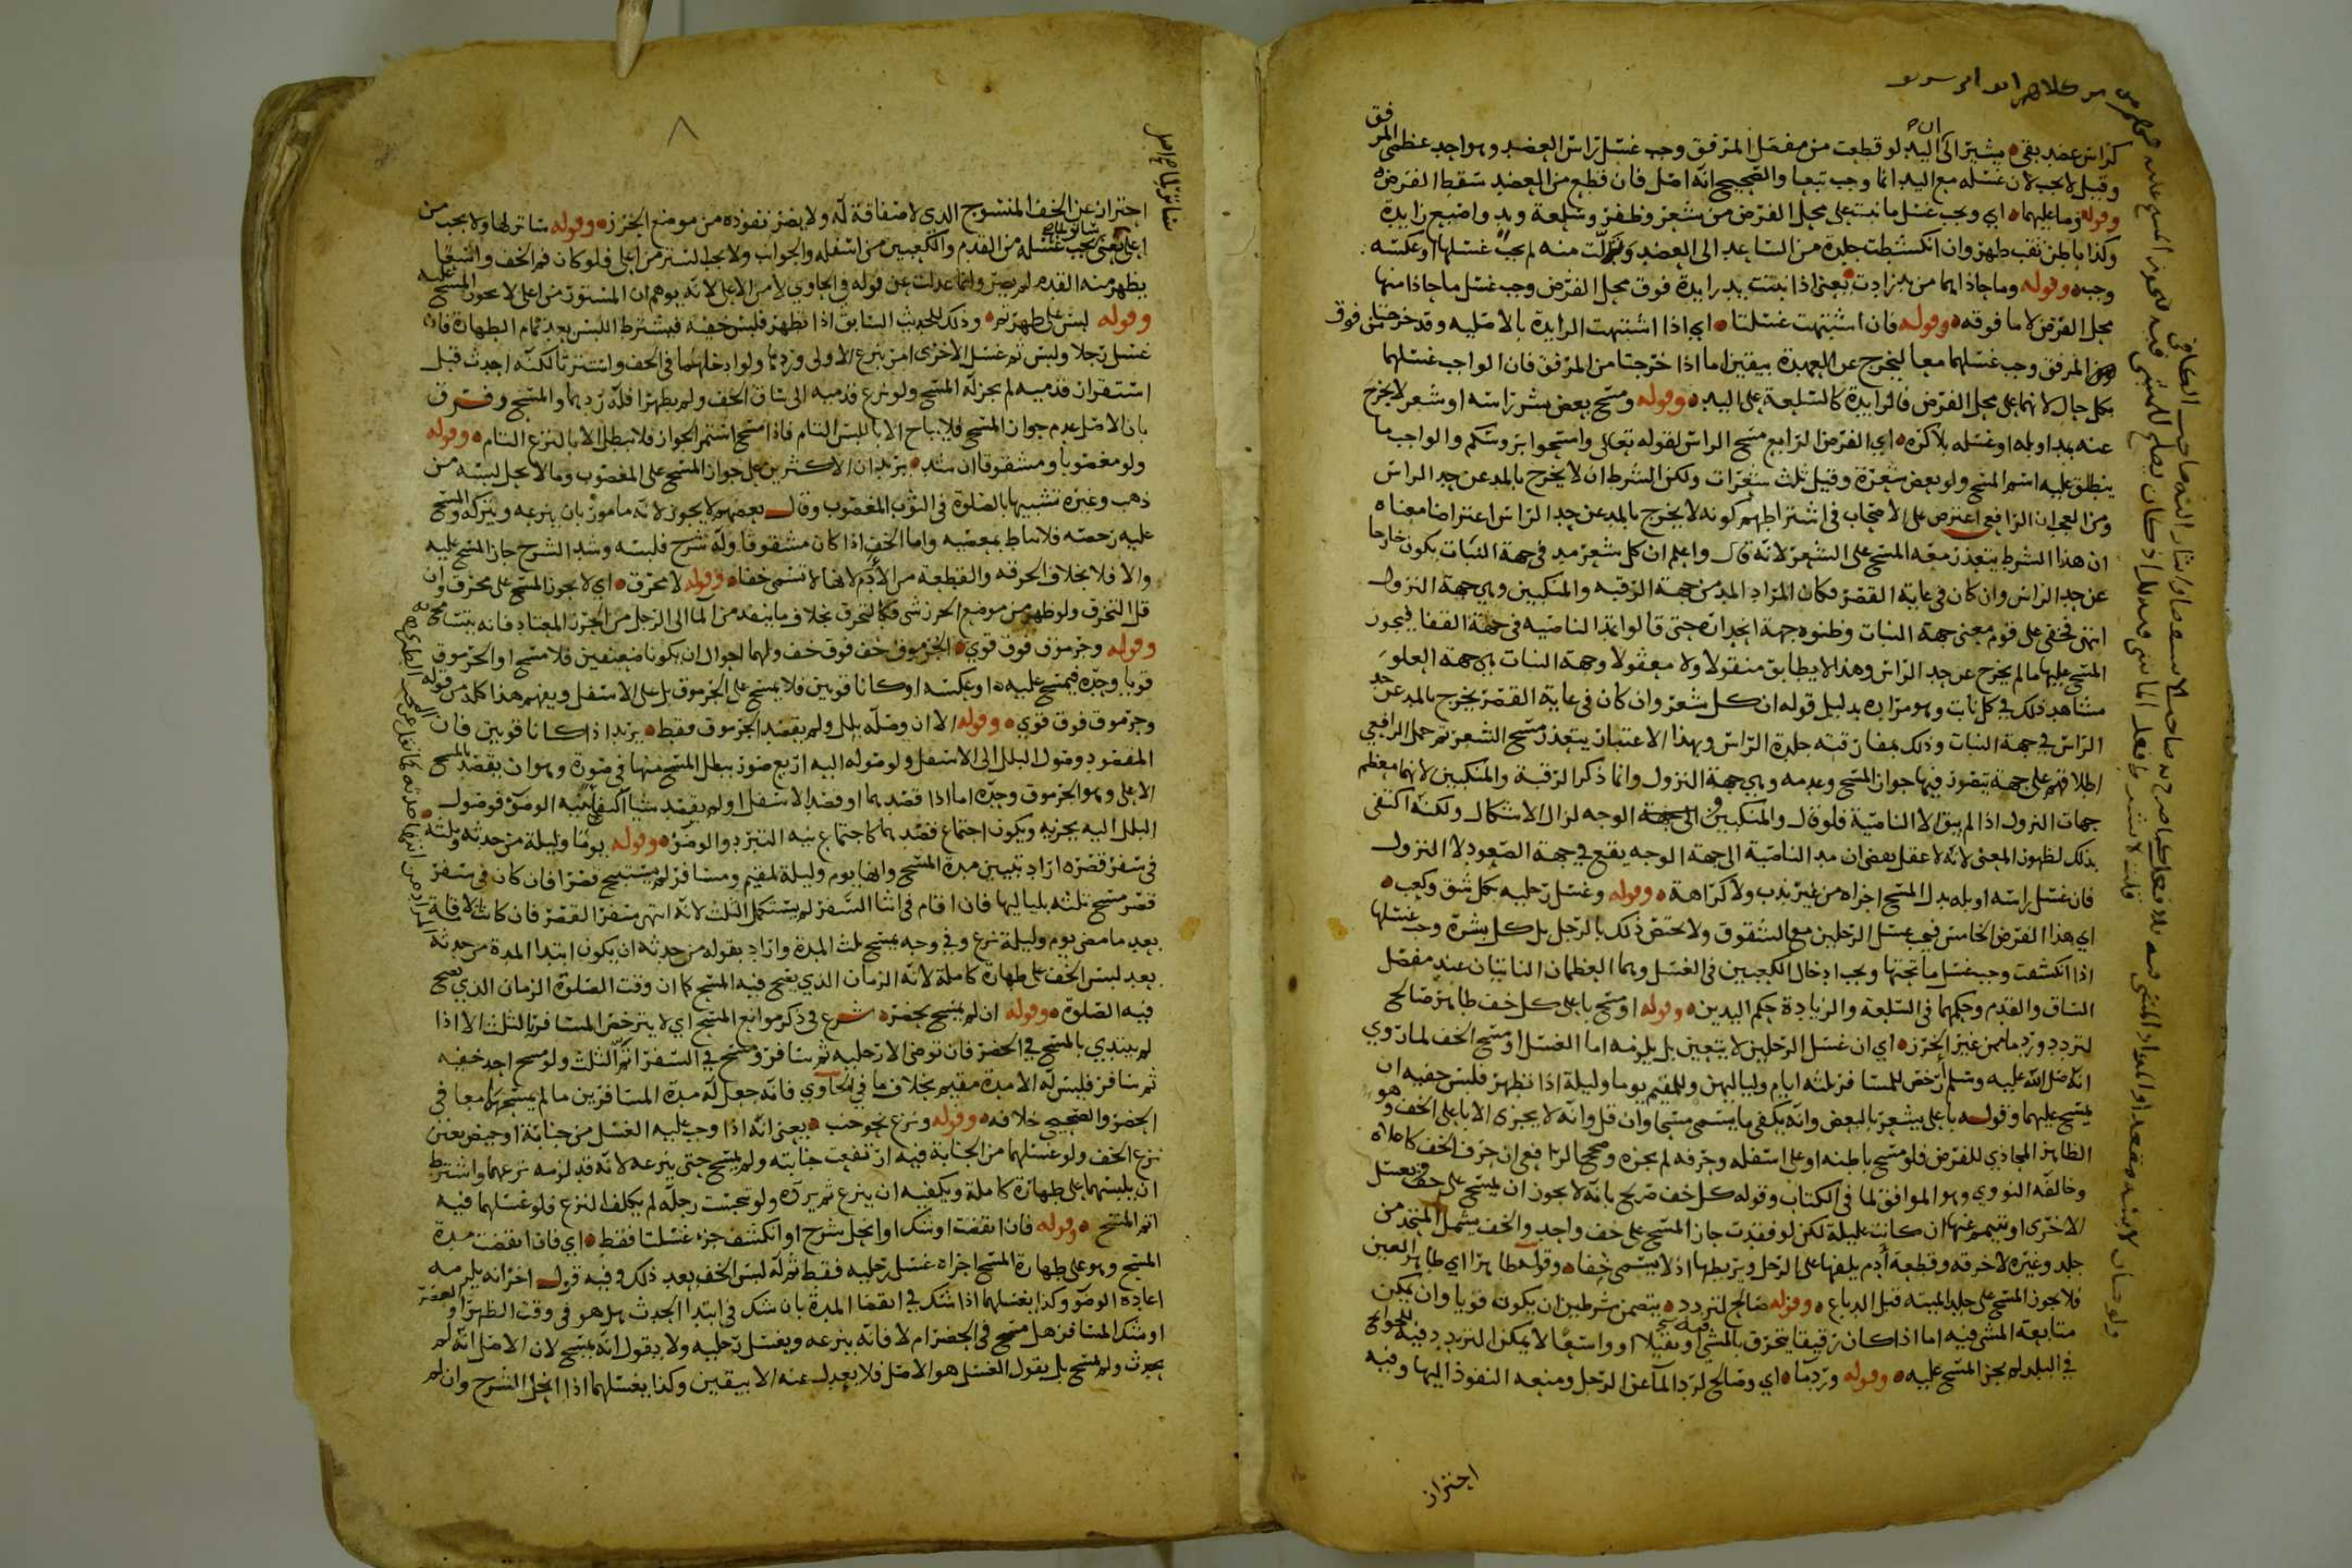 كراس عضد بقي يشير الى ان اليد لو قطعت من مفصل المرفق وجب غسل راس العضد وهو احد عظمي المرفق
وقيل لا يجب لان غسله مع اليد انما وجب تبعا والصحيح انه اصل فان قطع من العضد سقط الفرض
وقوله وما عليهما اي ويجب غسل ما نبت على محل الفرض من شعر وظفر وسلعة ويد واصبع زايدة
وكذا باطن ثقب ظهر وان انكشطت جلدة من الساعد الى العضد وتدلت منه لم يجب غسلها او عكسه
وجب وقوله وما حاذاهما من يد زادت يعني اذا نبتت يد زايدة فوق محل الفرض وجب غسل ما حاذا منها
محل الفرض لا ما فوقه وقوله فان اشتبهت غسلتا اي اذا اشتبهت الزايدة بالاصليه وقد خرجتا من فوق
المرفق وجب غسلهما معا ليخرج عن العهدة بيقين اما اذا خرجتا من المرفق فان الواجب غسلهما
بكل حال لانهما على محل الفرض فالزايدة كالسلعة على اليد وقوله ومسح بعض بشر راسه او شعر لا يخرج
عنه بمد او بله او غسله بلا كره اي الفرض الرابع مسح الراس لقوله تعالى وامسحوا برؤسكم والواجب ما
ينطلق عليه اسم المسح ولو بعض شعرة وقيل ثلث شعرات ولكن الشرط ان لا يخرج بالمد عن حد الراس
ومن العجب ان الرافعي اعترض على الاصحاب في اشتراطهم كونه لا يخرج بالمد عن حد الراس اعتراضا معناه
ان هذا الشرط يتعذر معه المسح على الشعر لانه قال واعلم ان كل شعر مد في جهة النبات يكون خارجا
عن حد الراس وان كان في غاية القصر فكان المراد المد من جهة الرقبه والمنكبين وهي جهة النزول
انتهى فخفي على قوم معنى جهة النبات وظنوه جهة انحداره حتى قالوا تمد الناصيه في جهة القفا فيجوز
المسح عليها ما لم يخرج عن حد الراس وهذا لا يطابق منقولا ولا معقولا وجهة النبات هي جهة العلو
مشاهد ذلك في كل نابت وهو مراده بدليل قوله ان كل شعر وان كان في غاية القصر يخرج بالمد عن حد
الراس في جهة النبات وذلك بمفارقته جلدة الراس وبهذا الاعتبار يتعذر مسح الشعر ثم حمل الرافعي
اطلاقهم على جهة يتصور فيها جواز المسح وعدمه وهي جهة النزول وانما ذكر الرقبة والمنكبين لانهما معظم
جهات النزول اذ لم يبق الا الناصية فلو قال والمنكبين والوجه لزال الاشكال ولكنه اكتفى
بذلك لظهور المعنى لانه لا عقل يقضي ان مد الناصية الى جهة الوجه يقع في جهة الصعود لا النزول
فان غسل راسه او بله بدل المسح اجزاه من غير ندب ولا كراهة وقوله وغسل رجليه بكل شق وكعب
اي هذا الفرض الخامس فيجب غسل الرجلين مع الشقوق ولا يختص ذلك بالرجل بل كل بشرة وجب غسلها
اذا انكشفت وجب غسل ما تحتها ويجب ادخال الكعبين في الغسل وهما العظمان الناتيان عند مفصل
الساق والقدم وحكمهما في السلعة والزيادة حكم اليدين وقوله او مسح باعلى كل خف طاهر صالح
لتردد ورد ما من غير الخرز اي ان غسل الرجلين لا يتعين بل يلزمه اما الغسل او مسح الخف لما روي
انه صلى الله عليه وسلم ارخص للمسافر ثلثه ايام ولياليهن وللمقيم يوما وليلة اذا تطهر فلبس خفيه ان
يمسح عليهما وقوله باعلى يشعر بالبعض وانه يكفي ما يسمى مسحا وان قل وانه لا يجزى الا باعلى الخف وهو
الظاهر المحاذي للفرض فلو مسح باطنه او على اسفله وحرفه لم يجزه وصحح الرافعي ان حرف الخف كاعلاه
وخالفه النووي وهو الموافق لما في الكتاب وقوله كل خف صريح بانه لا يجوز ان يمسح على خف ويغسل
الاخرى او يتيمم عنها ان كانت عليلة لكن لو فقدت جاز المسح على خف واحد والخف يشمل المتخذ من
جلد وغيره لا خرقه وقطعة ادم يلفها على الرجل ويربطها اذ لا يسمى خفا وقوله طاهرا اي طاهر العين
فلا يجوز المسح على جلد الميته قبل الدباغ وقوله صالح لتردد يتضمن شرطين ان يكون قويا وان يمكن
متابعة المشي فيه اما اذا كان رقيقا يتخرق بالمشي او ثقيلا او واسعا لا يمكن التردد فيه للحوائج
في البلد لم يجز المسح عليه وقوله ورد ما اي وصالح لرد الماء عن الرجل ومنعه النفوذ اليها وفيه
احتراز
احتراز عن الخف المنسوج الذي لا صفاقة له ولا يضر نفوذه من موضع الخرز وقوله ساتر لها ولا يجب من
اعلى يعني يجب ستر ما يجب غسله من القدم والكعبين من اسفله والجوانب ولا يجب الستر من اعلى فلو كان فم الخف واسعا
يظهر منه القدم لم يضر وانما عدلت عن قوله في الحاوي لا من الاعلى لانه يوهم ان المستور من اعلى لا يجوز المسح عليه
وقوله لبس على طهر تم وذلك للحديث السابق اذا تطهر فلبس خفيه فيشترط اللبس بعد تمام الطهارة فان
غسل رجلا ولبس ثم غسل الاخرى امر بنزع الاولى وردها ولو ادخلهما في الخف واستترتا لكنه احدث قبل
استقرار قدميه لم يجز له المسح ولو نزع قدميه الى ساق الخف ولم يظهرا فله ردهما والمسح وفرق
بان الاصل عدم جواز المسح فلا يباح الا باللبس التام فاذا مسح استمر الجواز فلا يبطل الا بالنزع التام وقوله
ولو مغصوبا ومشقوقا ان شد يريد ان الاكثرين على جواز المسح على المغصوب وما لا يحل لبسه من
ذهب وغيره تشبيها بالصلوة في الثوب المغصوب وقال بعضهم لا يجوز لانه مامور بان ينزعه ويتركه والمسح
عليه رخصه فلا تناط بمعصيه واما الخف اذا كان مشقوقا وله شرج فلبسه وشد الشرج جاز المسح عليه
والا فلا بخلاف الخرقه والقطعة من الادم لانها لا تسمى خفا وقوله لا مخرق اي لا يجوز المسح على مخرق وان
قل التخرق ولو ظهر من موضع الخرز شي فكالتخرق بخلاف ما ينفذ من الماء الى الرجل من الخرز المعتاد فانه يتسامح به
وقوله وجرموق فوق قوي الجرموق خف فوق خف ولهما احوال ان يكونا ضعيفين فلا مسح او الجرموق
قويا وحده فيمسح عليه او عكسه او كانا قويين فلا يمسح على الجرموق بل على الاسفل ويفهم هذا كله من قوله
وجرموق فوق قوي وقوله الا ان وصله بلل ولم يقصد الجرموق فقط يريد اذا كانا قويين فان
المقصود وصول البلل الى الاسفل ولوصوله اليه اربع صور يبطل المسح منها في صورة وهو ان يقصد بالمسح
الاعلى وهو الجرموق وحده اما اذا قصدهما او قصد الاسفل او لم يقصد شيا اكتفاء بنيه الوضوء فوصول
البلل اليه يجزيه ويكون اجتماع قصدهما كاجتماع نيه التبرد والوضوء وقوله يوما وليلة من حدثه وثلثة
في سفر قصره اراد تبيين مدة المسح وانها يوم وليلة لمقيم ومسافر لم يستبح قصرا فان كان في سفر
قصر مسح ثلثه بلياليها فان اقام في اثنا السفر لم يستكمل الثلث لانه انتهى سفر القصر فان كانت الاقامة
بعد ما مضى يوم وليلة نزع وفي وجه يمسح ثلث المدة واراد بقوله من حدثه ان يكون ابتدا المدة من حدثه
بعد لبس الخف على طهارة كاملة لانه الزمان الذي يصح فيه المسح كما ان وقت الصلوة الزمان الذي تصح
فيه الصلوة وقوله ان لم يمسح بحضر شرع في ذكر موانع المسح اي لا يترخص المسافر بالثلث الا اذا
لم يبتدي بالمسح في الحضر فان توضى الا رجليه ثم سافر ومسح في السفر اتم الثلث ولو مسح احد خفيه
ثم سافر فليس له الا مدة مقيم بخلاف ما في الحاوي فانه جعل له مدة المسافرين ما لم يمسحهما معا في
الحضر والصحيح خلافه وقوله ونزع نحو جنب يعني انه اذا وجب عليه الغسل من جنابة او حيض تعين
نزع الخف ولو غسلهما من الجنابة فيه ارتفعت جنابته ولم يمسح حتى ينزعه لانه قد لزمه نزعهما واشترط
ان يلبسهما على طهارة كاملة ويكفيه ان ينزع ثم يرده ولو تنجست رجله لم يكلف النزع فلو غسلهما فيه
اتم المسح وقوله فان انقضت او شك او انحل شرج او انكشف جزء غسلتا فقط اي فان انقضت مدة
المسح وهو على طهارة المسح اجزاه غسل رجليه فقط ثم له لبس الخف بعد ذلك وفيه قول اخر انه يلزمه
اعادة الوضوء وكذا يغسلهما اذا شك في انقضا المدة بان شك في ابتدا الحدث هل هو في وقت الظهر او العصر
او شك المسافر هل مسح في الحضر ام لا فانه ينزعه ويغسل رجليه ولا يقول انه يمسح لان الاصل انه لم
يحدث ولم يمسح بل يقول الغسل هو الاصل فلا يعدل عنه الا بيقين وكذا يغسلهما اذا انحل الشرج وان لم